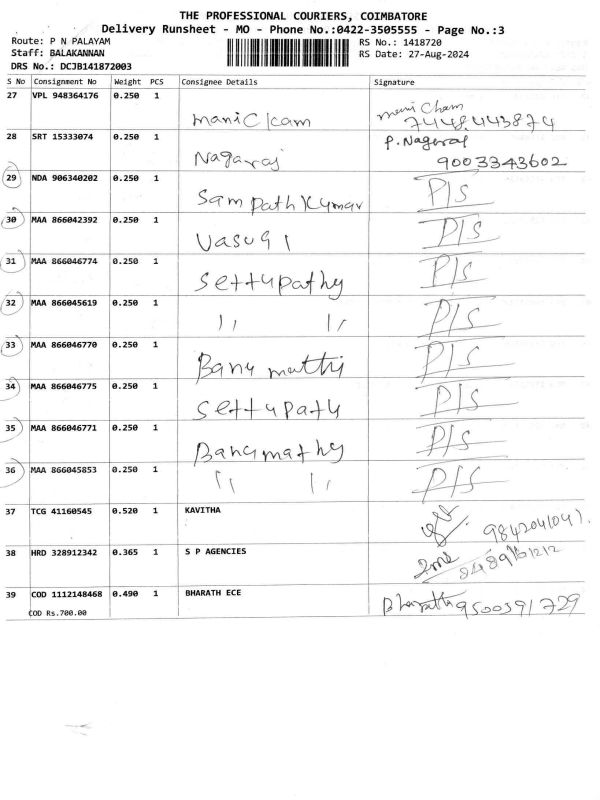 THE PROFESSIONAL COURIERS, COIMBATORE
Delivery Runsheet - MO - Phone No.:0422-3505555 - Page No.:3
Route: P N PALAYAM
Staff: BALAKANNAN
DRS No.: DCJB141872003
RS No.: 1418720
RS Date: 27-Aug-2024
S No Consignment No Weight PCS Consignee Details Signature
27 VPL 948364176 0.250 1
maniCkam mani Cham
7448443874
28 SRT 15333074 0.250 1 P. Nagaraj
Nagaraj 9003343602
29 NDA 906340202 0.250 1 P/S
Sampath Kumar
30 MAA 866042392 0.250 1 P/S
Vasugi
31 MAA 866046774 0.250 1 P/S
Settupathy
32 MAA 866045619 0.250 1 P/S
,, ,,
33 MAA 866046770 0.250 1 P/S
Banu mathi
34 MAA 866046775 0.250 1 P/S
Settupaty
35 MAA 866046771 0.250 1 P/S
Banumathy
36 MAA 866045853 0.250 1 P/S
,, ,,
37 TCG 41160545 0.520 1 KAVITHA
9842041041
38 HRD 328912342 0.365 1 S P AGENCIES
39 COD 1112148468 0.490 1 BHARATH ECE
9500391729
COD Rs.700.00